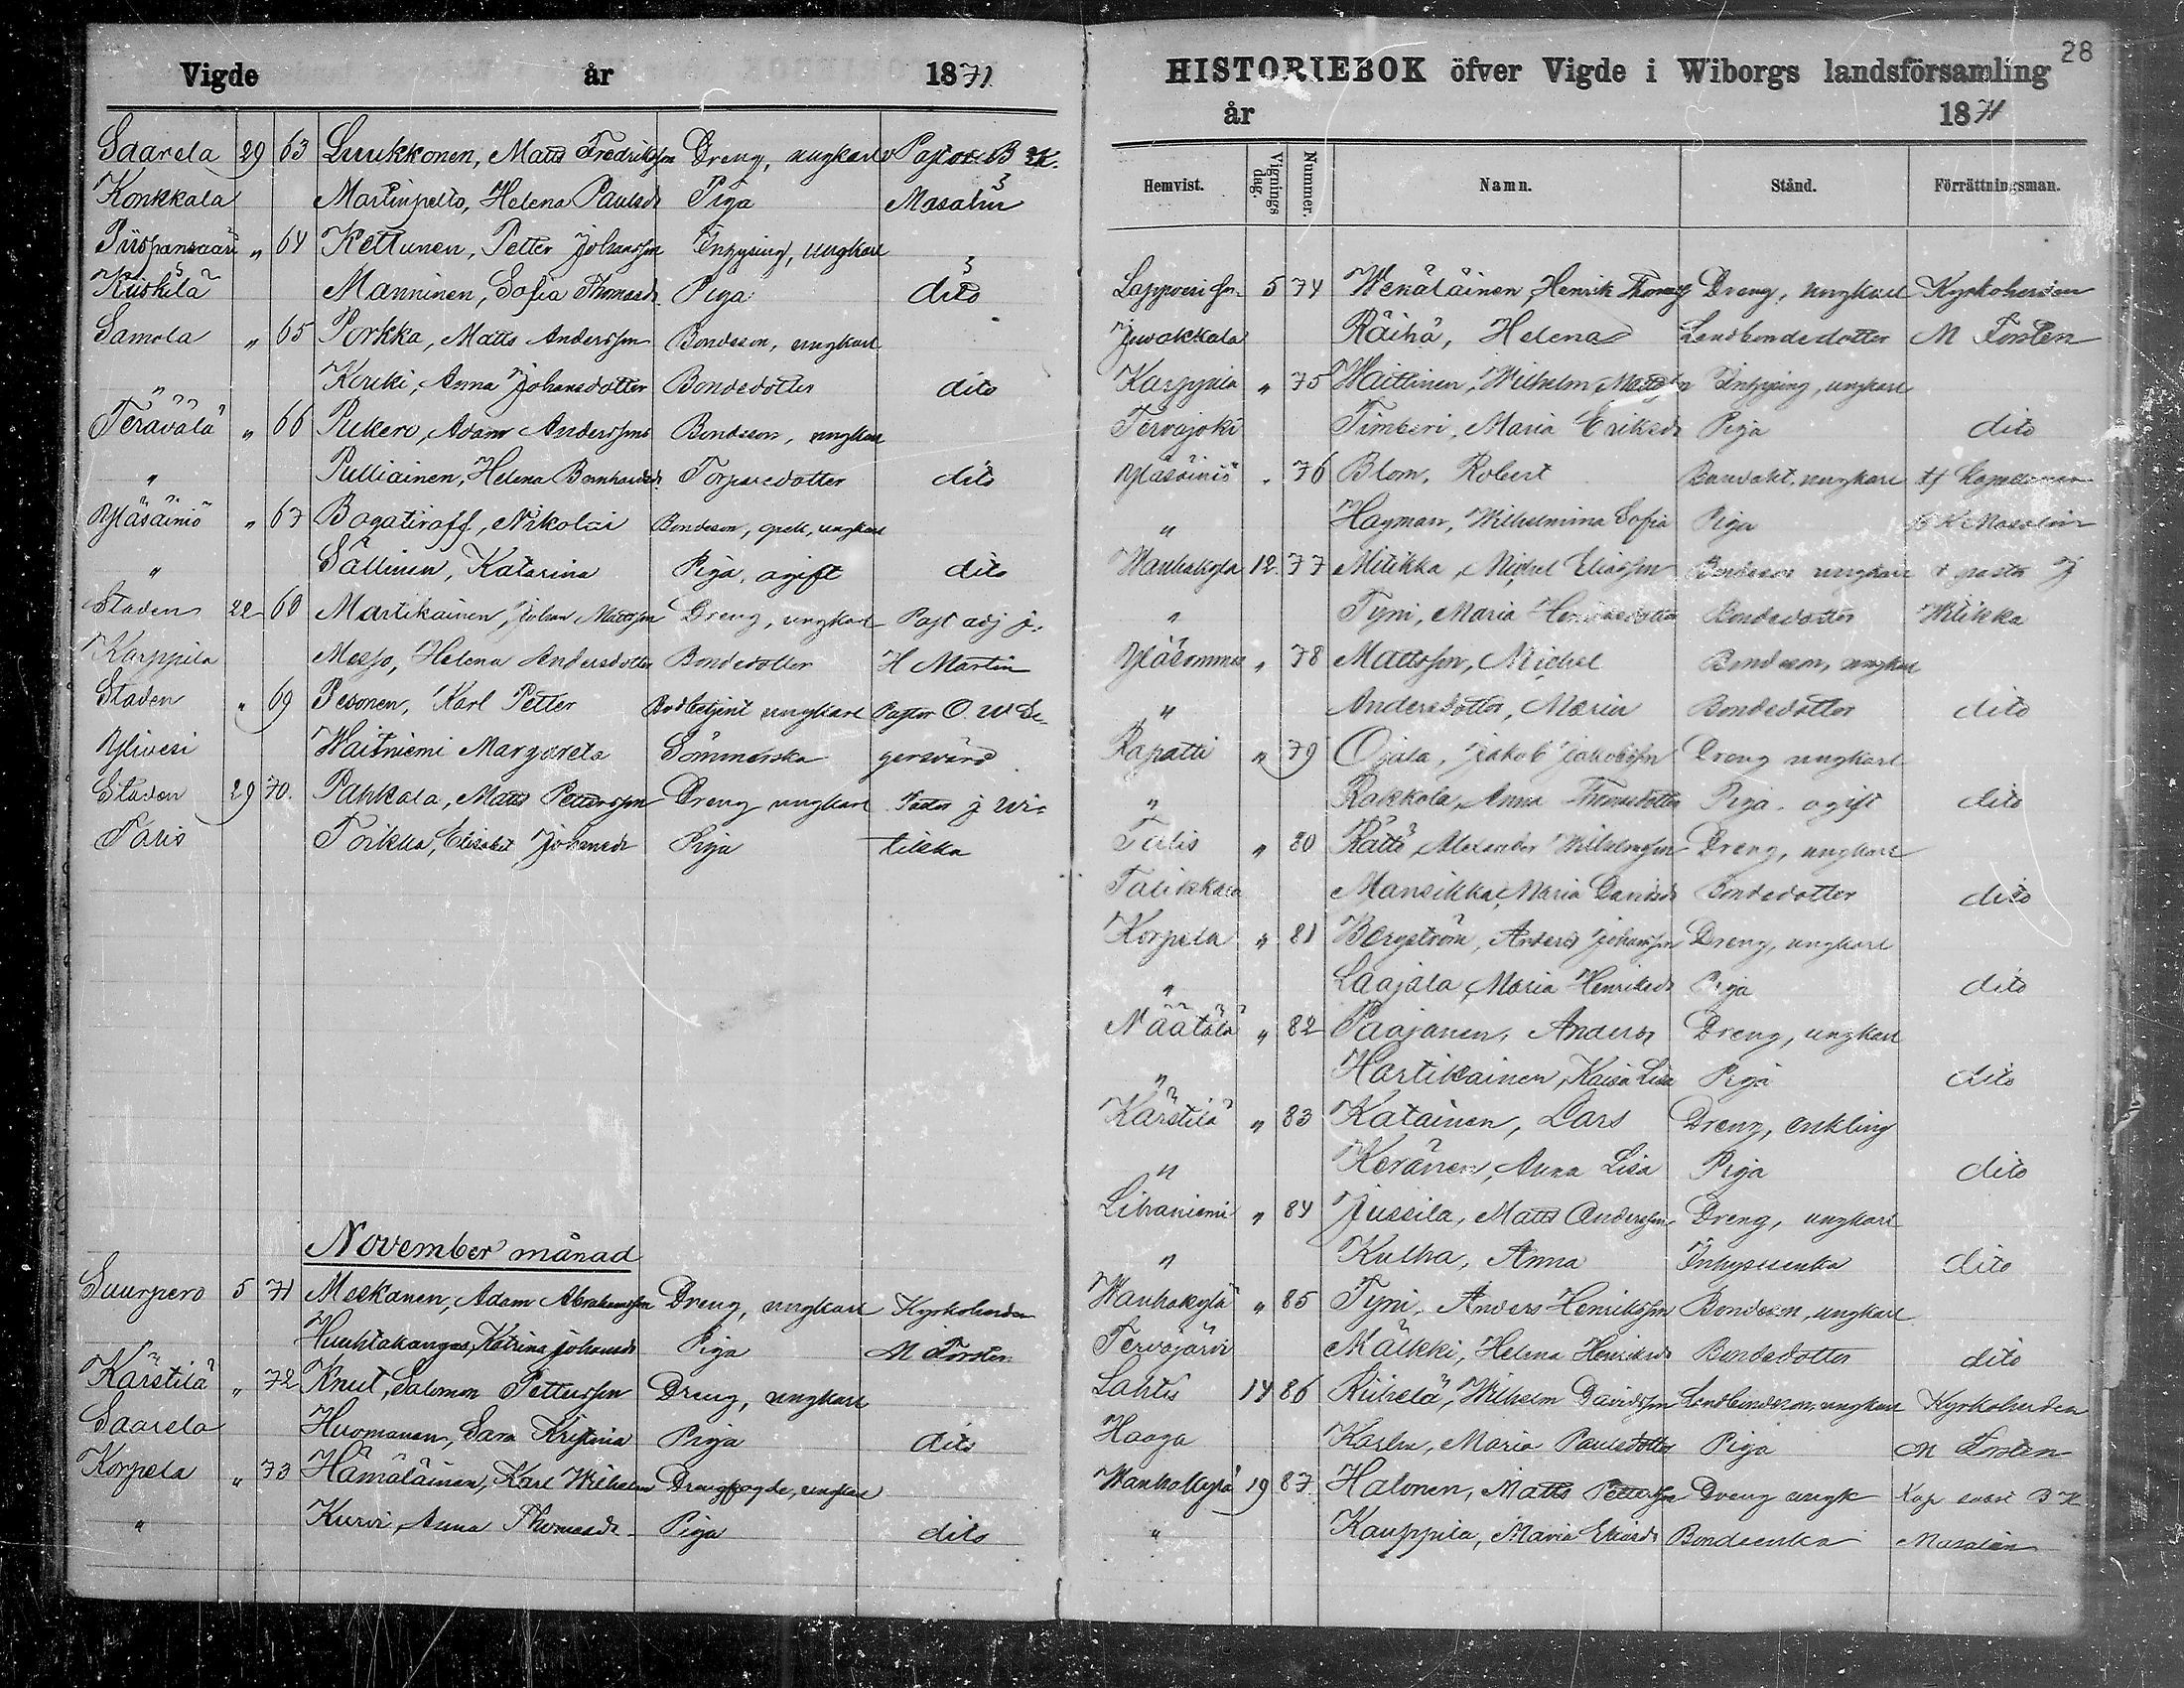 Vigde år 1871
Saarela 29 63 Luukkonen, Matts Fredriksson Dreng, ungkarl Pastor B K.
Konkkala Martinpelto, Helena Paulsd Piga Masalin
Piispansaari " 64 Kettunen, Petter Johansson Inhysing, ungkarl
Kiiskilä Manninen, Sofia Thomasd. Piga dito
Samola " 65 Porkka, Matts Andersson Bondeson, ungkarl
" Kurki, Anna Johansdotter Bondedotter dito
Terävälä " 66 Pukero, Adam Andersson Bondeson, ungkarl
" Pulliainen, Helena Bernhardsd. Torparedotter dito
Yläsäiniö " 67 Bogatiroff, Nikolai Bondeson, ungkarl
" Sällinen, Katarina Piga, ogift dito
Staden 22 68 Martikainen, Johan Mattsson Dreng, ungkarl Past adj j.
Karppila Mesjo, Helena Andersdotter Bondedotter H Martin
Staden " 69 Pesonen, Karl Petter Bodbetjent ungkarl Pastor O. W Se-
Ylivesi Waitniemi Margareta Sömmerska gersvärd
Staden 29 70. Pakkala, Matts Pettersson Dreng ungkarl Pastor j Wi-
Talis Torikka, Elisabet Johansd Piga tikka
November månad
Suurpero 5 71 Meskanen, Adam Abrahamsson Dreng, ungkarl Kyrkoherden
" Huuhtakangas, Katrina Johansd Piga M Forsten
Kärstilä " 72 Knut, Salomon Pettersson Dreng, ungkarl
Saarela Huomanen, Sara Kristina Piga dito
Korpela " 73 Hämäläinen, Karl Wilhelm Drengfogde, ungkarl
" Kurvi, Anna Thomasd. Piga dito
28
HISTORIEBOK öfver Vigde i Wiborgs landsförsamling
år 1871
Hemvist. Vignings dag. Nummer. Namn. Stånd. Förrättningsman.
Lappvesi 5 74 Wenäläinen, Henrik Thomass Dreng, ungkarl Kyrkoherden
Juvakkala Räihä, Helena Landbondedotter M Forsten
Karppila " 75 Waittinen, Wilhelm Mattsson Inhysing, ungkarl
Tervajoki Timperi, Maria Eriksd Piga dito
Yläsäiniö " 76 Blom, Robert Banvakt, ungkarl tf Kapellanen
" Hagman, Wilhelmina Sofia Piga B K Masalin
Wanhakylä 12. 77 Mitikka, Michel Eliasson Bondeson ungkarl v pastor J
" Tyni, Maria Henriksdotter Bondedotter Witikka
Yläsommee " 78 Mattsson, Michel Bondeson, ungkarl
" Andersdotter, Maria Bondedotter dito
Rapatti " 79 Ojala, Jakob Jakobsson Dreng ungkarl
" Rakkola, Anna Thomasdotter Piga. ogift dito
Talis " 80 Rättö, Alexander Wilhelmsson Dreng, ungkarl
Talikkala Mansikka, Maria Davidsd Bondedotter dito
Korpela " 81 Bergström, Anders Johansson Dreng, ungkarl
" Laajala, Maria Henriksd Piga dito
Näätälä " 82 Paajanen, Anders Dreng, ungkarl
" Hartikainen, Kaisa Lisa Piga dito
Kärstilä " 83 Katainen, Lars Dreng, enkling
" Keränen, Anna Lisa Piga dito
Lihaniemi " 84 Jussila, Matts Andersson Dreng, ungkarl
" Kulha, Anna Inhysesenka dito
Wanhakylä " 85 Tyni, Anders Henriksson Bondeson, ungkarl
Tervajärvi Mälkki, Helena Henriksd Bondedotter dito
Lahtis 14 86 Riihelä, Wilhelm Davidsson Landbondeson, ungkarl Kyrkoherden
Haaga Karhu, Maria Paulsdotter Piga M Forsten
Wanhakylä 19 87. Halonen, Matts Pettersson Dreng ungk Kap B K
" Kauppila, Maria Bondeenka Masalin